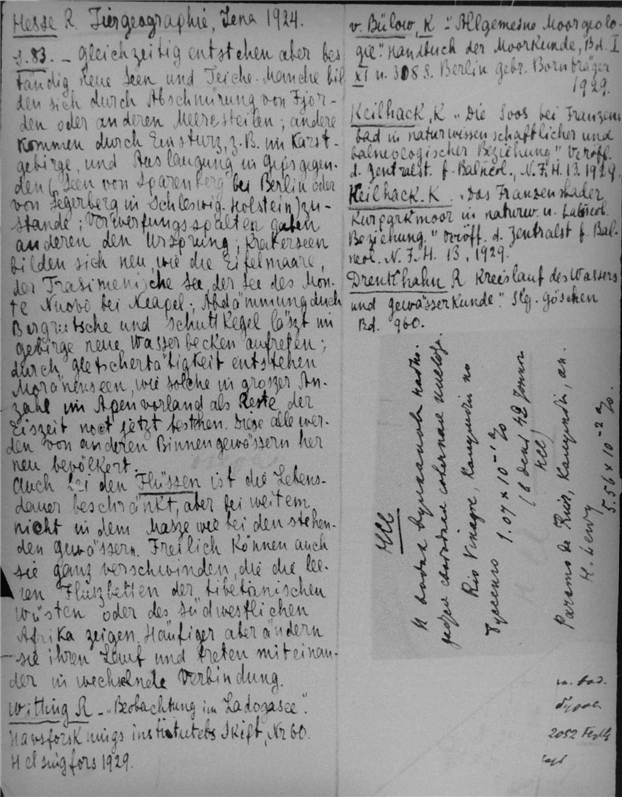 Hesse R. Tiergeographie, Jena 1924.
S. 83. – gleichzeitig entstehen aber bes
tändig neue Seen und Teiche. Manche bil
den sich durch Abschnürung von Fjor-
den oder anderen Meeresteilen; andere
kommen durch Einsturz, z.B. im Karst-
gebirge, und Auslaugung in Gipsgegen.
den (Seen von Sparenberg bei Berlin oder
von Segerberg in Schleswig-Holstein) zu-
stande; Verwerfungsspalten gaben
anderen den Ursprung; Kraterseen
bilden sich neu, wie die Eifelmaare,
der Trasimenische See, der See des Mon-
te Nuovo bei Neapel; Abdämmung durch
Bergrutsche und Schuttkegel läszt im
gebirge neue Wasserbecken auftreten;
durch gletschertätigkeit entstehen
Moränenseen, wie solche in groszer An-
zahl im Alpenvorland als Reste der
Eiszeit noch jetzt bestehen. Diese alle wer-
den von anderen Binnengewässern her
neu bevölkert.
Auch bei den Flüssen ist die Lebens-
dauer beschränkt, aber bei weitem
nicht in dem Masze wie bei den stehen-
den gewässern. Freilich können auch
sie ganz verschwinden, die die lee-
ren Fluszbetten der tibetanischen
Wüsten oder des südwestlichen
Afrika zeigen. Häufiger aber ändern
sie ihren Lauf und treten miteinan-
der in wechselnde Verbindung.
Witting R – "Beobachtung im Ladogasee".
Havsforsknings institutets Skift, Nr 60.
Helsingfors 1929.
v. Bülow, K – "Allgemeine Moorgeolo-
gie" Handbuch der Moorkunde, Bd. I
XI u. 308 S. Berlin gebr. Bornträger
1929.
Keilhack, K "Die Soos bei Franzens
bad in naturwissenschaftlicher und
balneologischer Beziehung" Veröff.
d. Zentralst. f. Balneol., N.F.H. 13. 1929.
Keilhack. K. "Das Franzensbader
Kurparkmoor in naturw. u. balneol.
Beziehung." Veröff. d. Zentralst f. Bal-
neol. N.F.H. 13, 1929.
Drenkhahn R Kreislauf des Wassers
und gewässerkunde". Slg. Göschen
Bd. 960.
HCl
Rio Vinagre
1.07 × 10⁻¹ %
HCl
H. Lewy
5.56 × 10⁻² %
2052